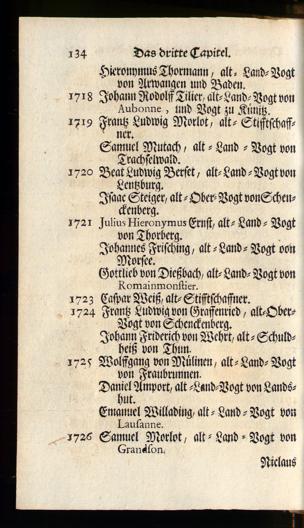 134 Das dritte Capitel.
Hieronymus Thormann, alt-Land-Vogt
von Arwangen und Baden.
1718 Johann Rodolff Tilier, alt-Land-Vogt von
Aubonne, und Vogt zu Könitz.
1719 Frantz Ludwig Morlot, alt-Stifftschaff-
ner.
Samuel Mutach, alt-Land-Vogt von
Trachselwald.
1720 Beat Ludwig Berset, alt-Land-Vogt von
Lentzburg.
Isaac Steiger, alt-Ober-Vogt von Schen-
ckenberg.
1721 Julius Hieronymus Ernst, alt-Land-Vogt
von Thorberg.
Johannes Frisching, alt-Land-Vogt von
Morsee.
Gottlieb von Dießbach, alt-Land-Vogt von
Romainmonstier.
1723 Caspar Weiß, alt-Stifftschaffner.
1724 Frantz Ludwig von Graffenried, alt-Ober-
Vogt von Schenckenberg.
Johann Friderich von Wehrt, alt-Schuld-
heiß von Thun.
1725 Wolffgang von Mülinen, alt-Land-Vogt
von Fraubrunnen.
Daniel Amport, alt-Land-Vogt von Lands-
hut.
Emanuel Willading, alt-Land-Vogt von
Lausanne.
1726 Samuel Morlot, alt-Land-Vogt von
Grandson.
Niclaus